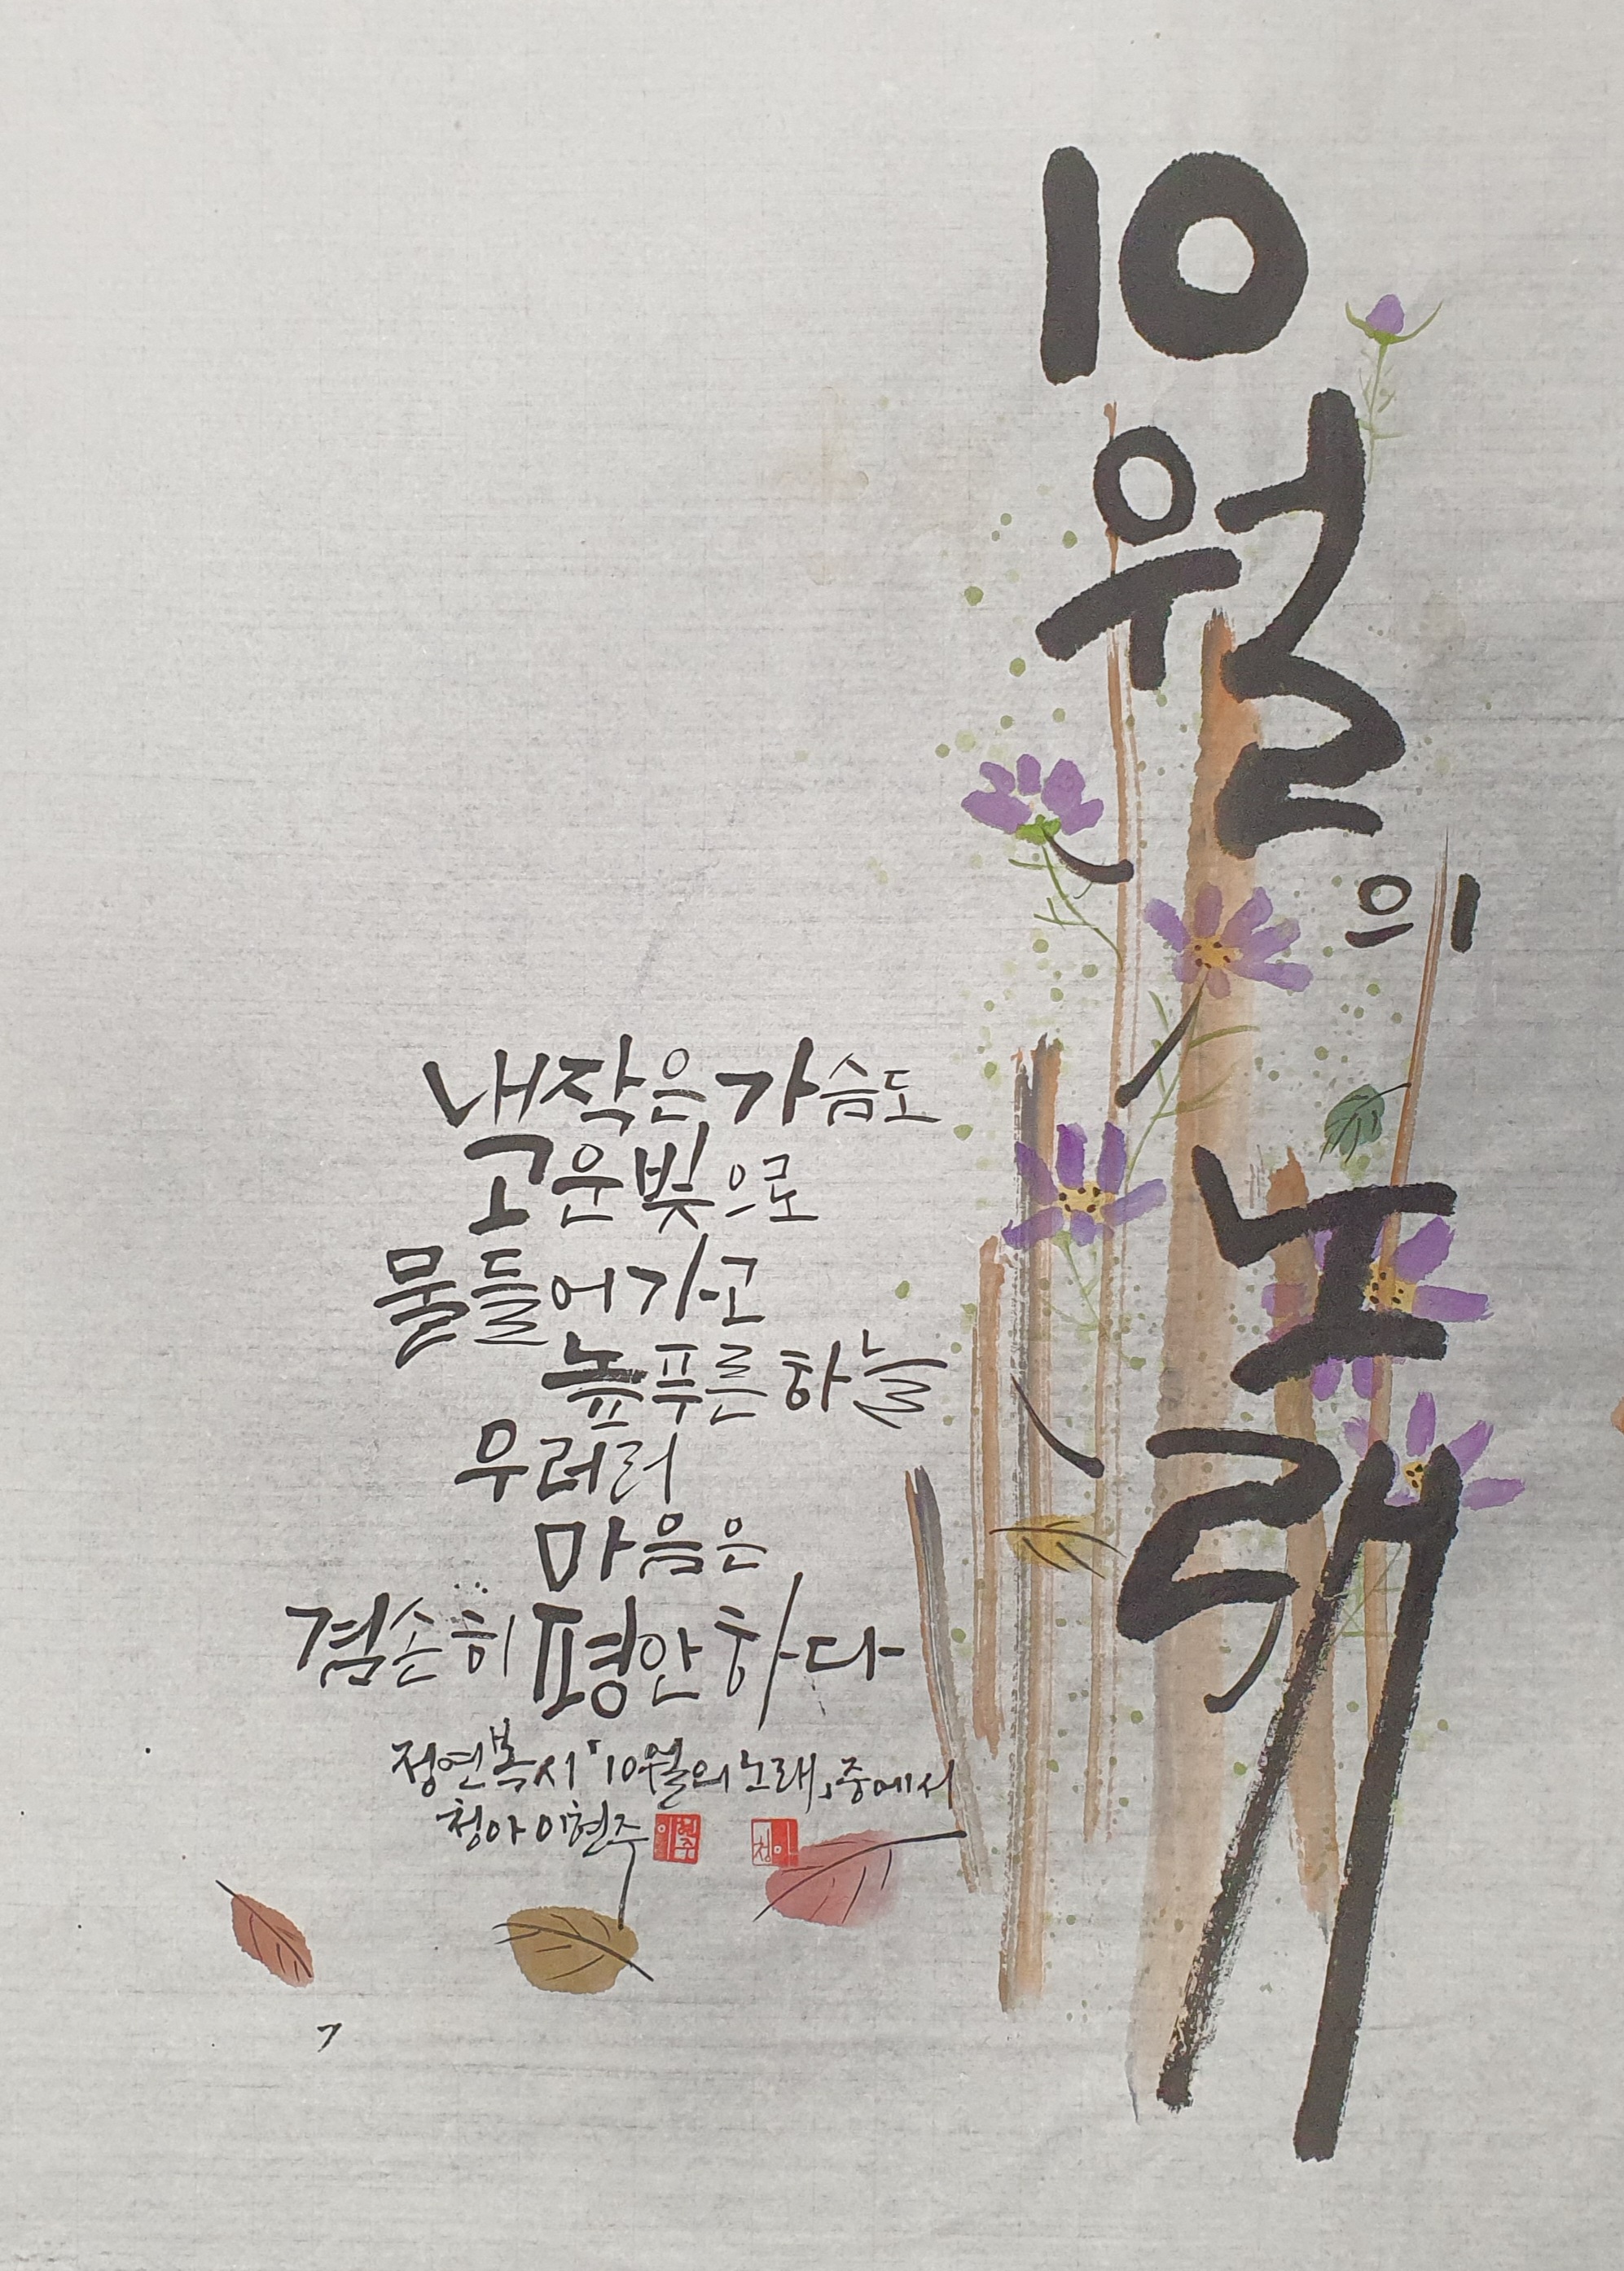 10
월
의
노
래
내 작은 가슴도
고운 빛으로
물들어 가고
높푸른 하늘
우러러
마음은
겸손히 평안하다
정연복 시 「10월의 노래」 중에서
청아 이현주 이현주 청아